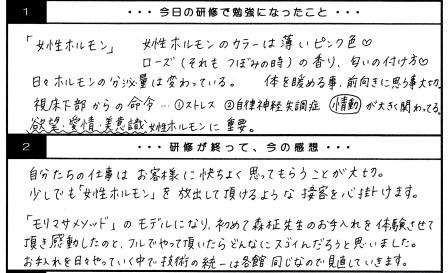 1 ・・・今日の研修で勉強になったこと・・・
「女性ホルモン」 女性ホルモンのカラーは薄いピンク色♡
ローズ(それもつぼみの時)の香り、匂いの付け方♡
日々ホルモンの分泌量は変わっている。 体を暖める事、前向きに思う事大切。
視床下部からの命令…①ストレス ②自律神経失調症 情動が大きく関わってる。
欲望・愛情・美意識 女性ホルモンに重要。
2 ・・・研修が終って、今の感想・・・
自分たちの仕事はお客様に快ちよく思ってもらうことが大切。
少しでも「女性ホルモン」を放出して頂けるような接客を心掛けます。
「モリマサメソッド」のモデルになり、初めて森柾先生のお手入れを体験させて
頂き感動したのと、フルでやって頂いたらどんなにスゴイんだろうと思いました。
お手入れを日々やっていく中で技術の統一は各館同じなので見直していきます。